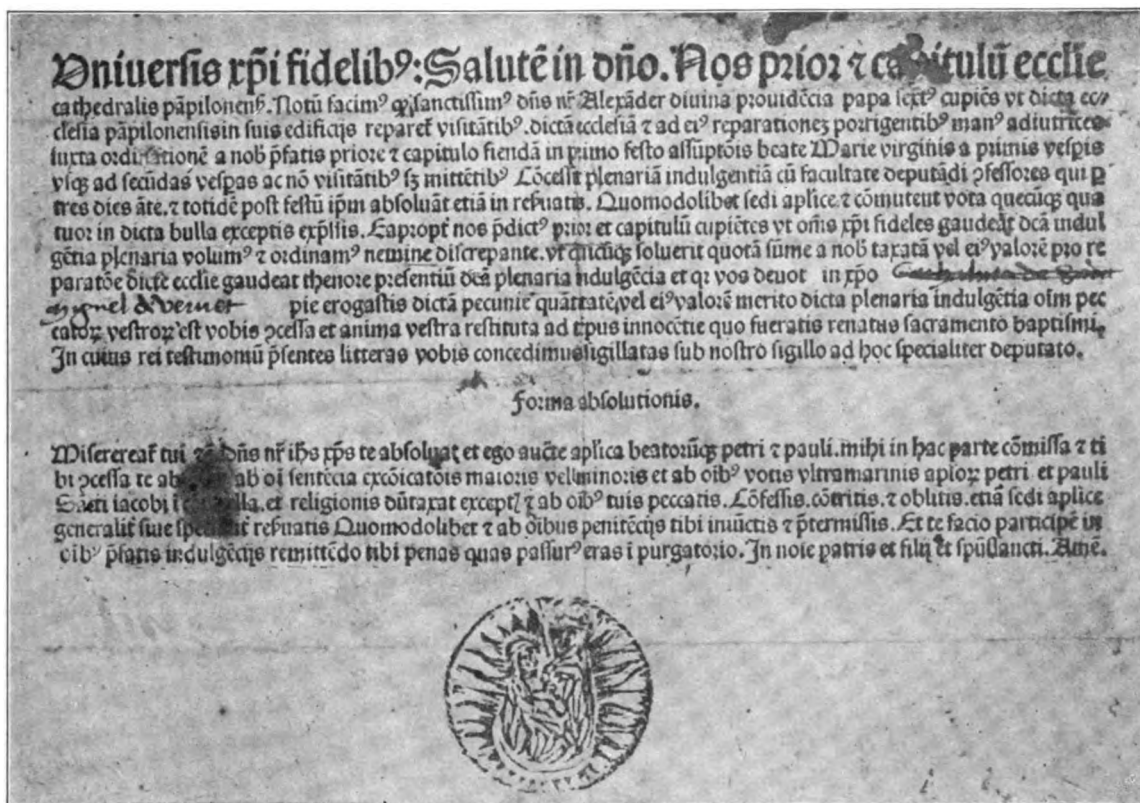 Vniuersis xp̄i fidelibꝰ: Salutē in dño. Nos prior ⁊ capitulū ecclie
cathedralis pāpilonenſ. Notū facimꝰ ꝙ sanctissimꝰ dñs nr̄ Alexāder diuina prouidēcia papa sextꝰ cupiēs vt dicta ec/
clesia pāpilonensis in suis edificijs reparet᷑ visitātibꝰ. dictā ecclesiā ⁊ ad eiꝰ reparationeȝ porrigentibꝰ manꝰ adiutrices
iuxta ordinationē a nob̄ p̄fatis priore ⁊ capitulo fiendā in primo festo assūptōis beate Marie virginis a primis vesp̄is
vsqȝ ad secūdas vesp̄as ac nō visitātibꝰ sȝ mittētibꝰ Cōcessit plenariā indulgentiā cū facultate deputādi ꝯfessores qui ꝑ
tres dies āte. ⁊ totidē post festū ip̄m absoluāt etiā in res̄uatis. Quomodolibet sedi aplice. ⁊ cōmutent vota quecūqȝ qua
tuor in dicta bulla exceptis exp̄ssis. Eapropt᷑ nos p̄dictꝰ prior et capitulū cupiētes vt om̄s xp̄i fideles gaudeāt dcā indul
gētia plenaria volumꝰ ⁊ ordinamꝰ nemine discrepante. vt quicūqȝ soluerit quotā sūme a nob̄ taxatā vel eiꝰ valorē pro re
paratōe dicte ecclie gaudeat thenore presentiū dcā plenaria indulgēcia et qꝛ vos deuot in xp̄o
pie erogastis dictā pecunie quātitatē, vel eiꝰ valorē merito dicta plenaria indulgētia oīm pec
catoꝝ vestroꝝ est vobis ꝯcessa et anima vestra restituta ad tp̄us innocētie quo fueratis renatus sacramento baptismi.
In cuius rei testimoniū p̄sentes litteras vobis concedimus sigillatas sub nostro sigillo ad hoc specialiter deputato.
Forma absolutionis.
Misereat᷑ tui ⁊ē Dñs nr̄ ih̄s xp̄s te absoluat et ego auct̄e aplica beatorūqȝ petri ⁊ pauli. mihi in hac parte cōmissa ⁊ ti
bi ꝯcessa te ab oī sentēcia excōicatōis maioris vel minoris et ab oībꝰ votis vltramarinis aploꝝ petri et pauli
Sācti iacobi et religionis dūtaxat exceptꝭ ⁊ ab oībꝰ tuis peccatis. Cōfessis. cōtritis. ⁊ oblitis. etiā sedi aplice
generalit᷑ siue res̄uatis Quomodolibet ⁊ ab oībus penitēcijs tibi iniūctis ⁊ p̄termissis. Et te facio participē in
oībꝰ p̄fatis indulgēcijs remittēdo tibi penas quas passurꝰ eras ī purgatorio. In noīe patris et filij et spūssancti. Amē.